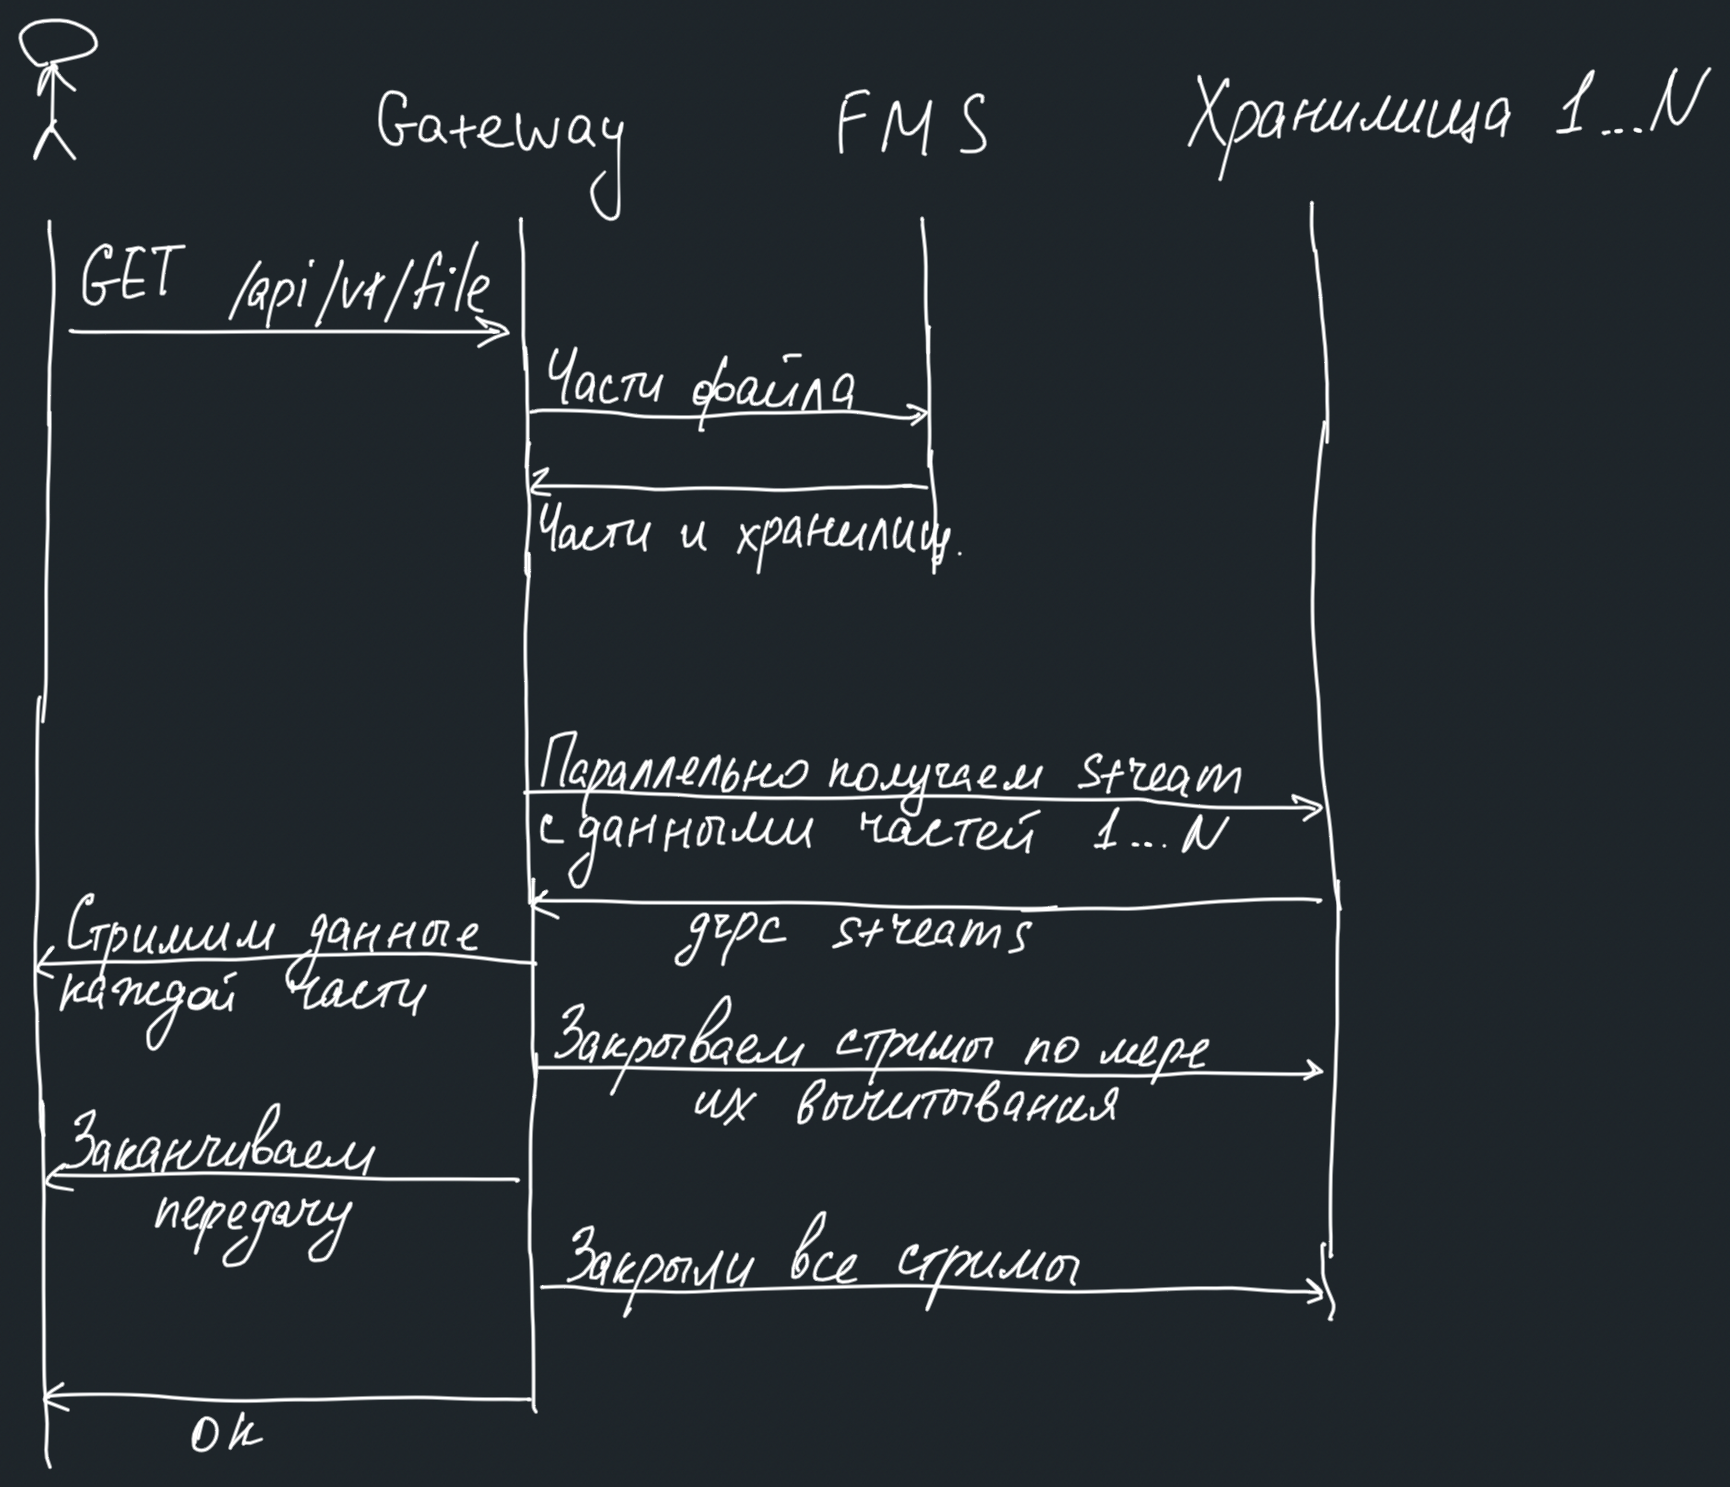 Gateway
FMS
Хранилища 1...N
GET /api/v1/file
Части файла
Части и хранилищ.
Параллельно получаем stream
с данными частей 1...N
дгрс streams
Стримим данные
каждой части
Закрываем стримы по мере
их вычитывания
Заканчиваем
передачу
Закрыли все стримы
ок